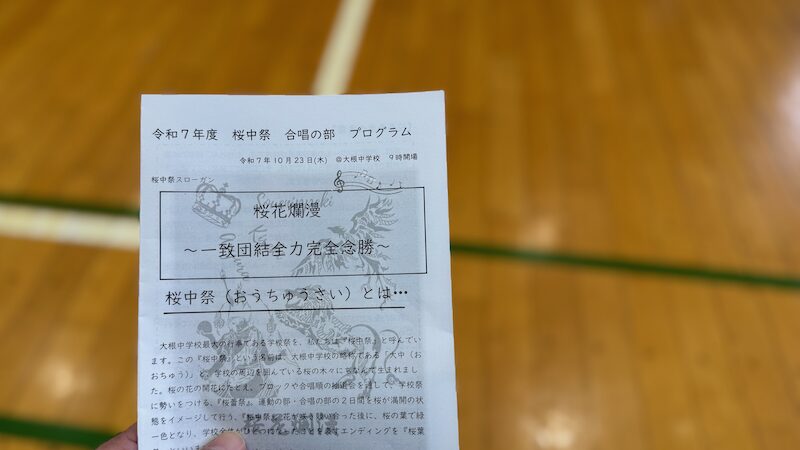 令和７年度　桜中祭　合唱の部　プログラム
令和７年１０月２３日(木)　＠大根中学校　９時開場
桜中祭スローガン
桜花爛漫
～一致団結全力完全念勝～
桜中祭（おうちゅうさい）とは…
大根中学校最大の行事である学校祭を、私たちは『桜中祭』と呼んでい
ます。この『桜中祭』という名前は、大根中学校の略称である「大中（お
おちゅう）」と、学校の周辺を囲んでいる桜の木々にちなんで生まれまし
た。桜の花の開花にたとえ、ブロックや合唱順の抽選会を通して、学校祭
に勢いをつける、『桜蕾祭』、運動の部・合唱の部の２日間を桜が満開の状
態をイメージして行う、『桜中祭』、花が咲き競い合った後に、桜の葉で緑
一色となり、学校全体がひとつになったことを表すエンディングを『桜葉